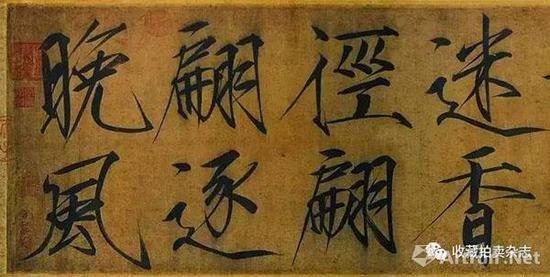 迷香
徑翩
翩逐
晚風
收藏拍卖杂志
Artron.Net